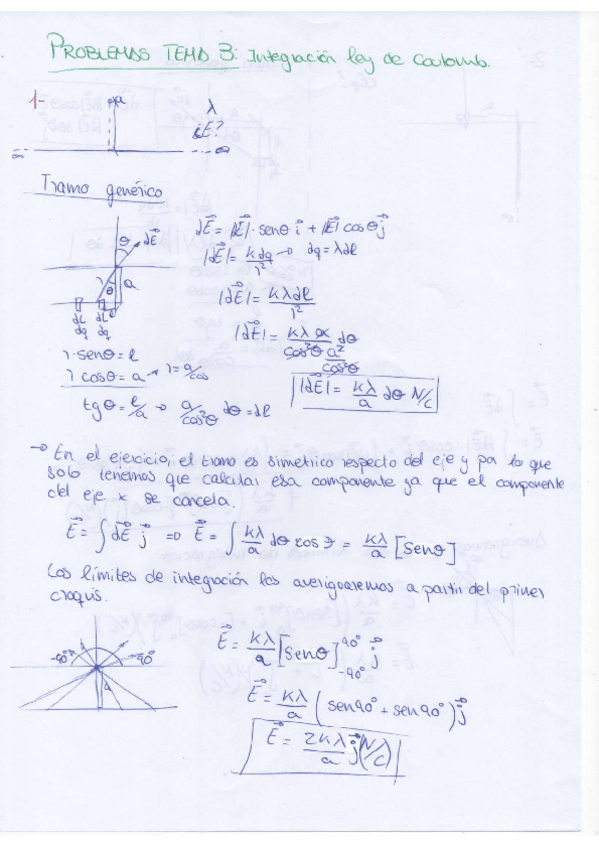 PROBLEMAS TEMA 3: Integración ley de Coulomb.
1-
a
λ
¿E⃗?
-∞ ∞
Tramo genérico
θ dE⃗
r θ a
dl dl l
dq dq
dE⃗ = |dE⃗|·senθ i⃗ + |dE⃗| cosθ j⃗
|dE⃗| = k dq / r² → dq = λdl
|dE⃗| = kλdl / r²
|dE⃗| = kλ a / (cos²θ a²/cos²θ) dθ
|dE⃗| = kλ/a dθ N/C
r·senθ = l
r cosθ = a → r = a/cos
tgθ = l/a ⇒ a/cos²θ dθ = dl
→ En el ejercicio, el tramo es simétrico respecto del eje y por lo que
solo tenemos que calcular esa componente ya que el componente
del eje x se cancela.
E⃗ = ∫ dE⃗ j⃗ ⇒ E⃗ = ∫ kλ/a dθ cos θ = kλ/a [senθ]
Los límites de integración los averiguaremos a partir del primer
croquis.
-90° 90°
a
E⃗ = kλ/a [senθ]₋₉₀°^90° j⃗
E⃗ = kλ/a (sen90° + sen90°) j⃗
E⃗ = 2kλ/a j⃗ (N/C)